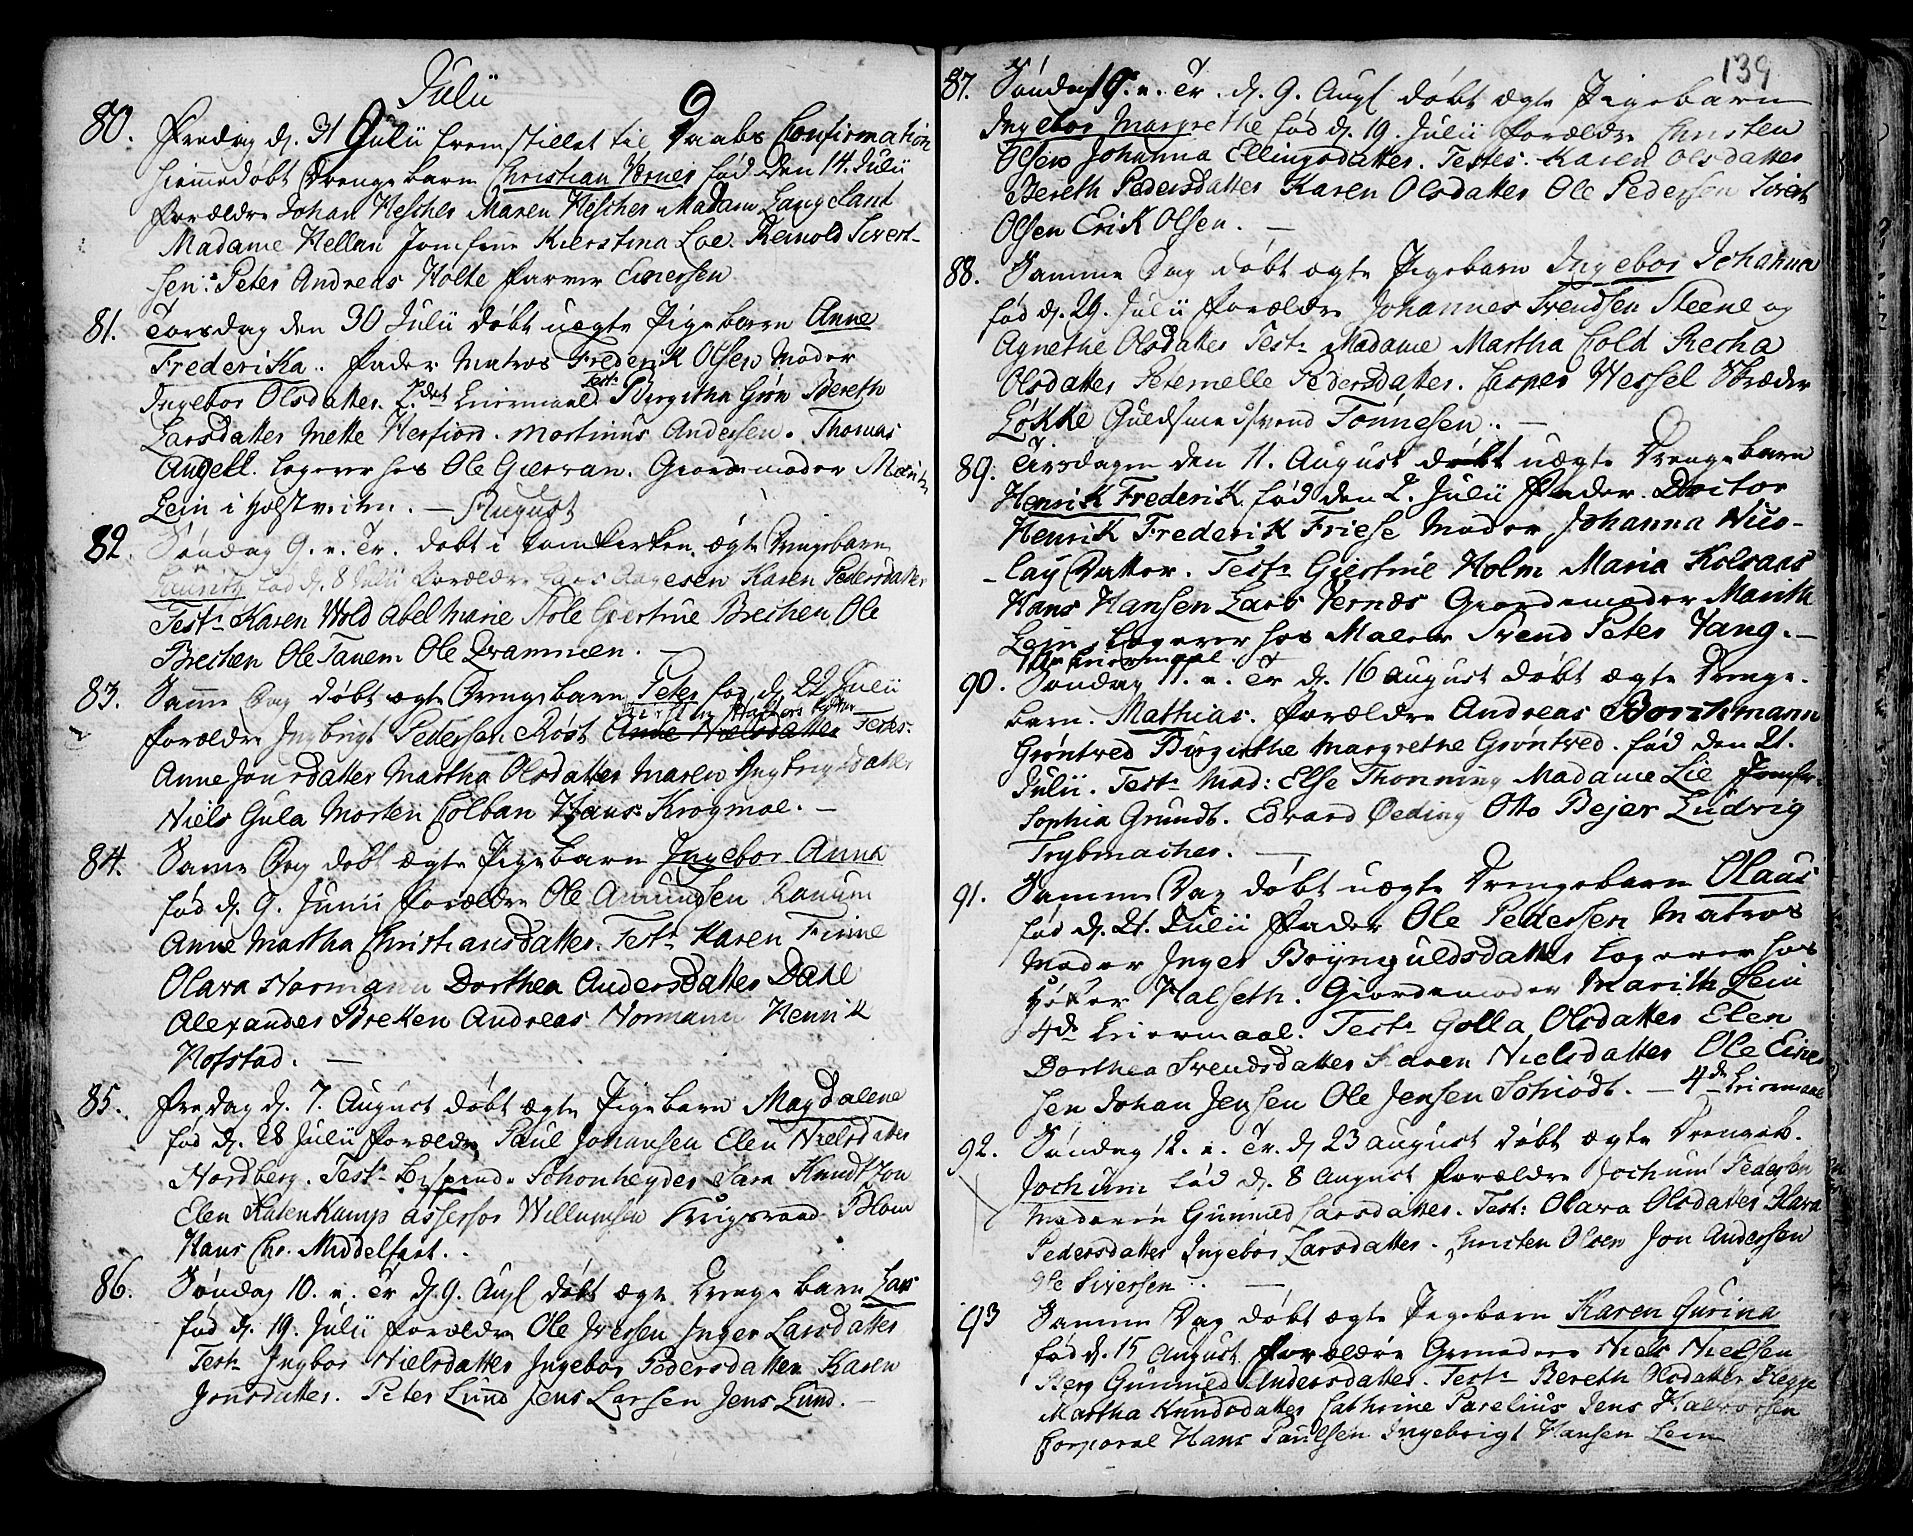 Julii
80. Fredag d. 31 Julii fremstillet til Daabs Confirmation
hiemmedøbt Drengebarn Christian Børnes fød den 14. Julii
Forældre Johan Hescher Maren Hescher Madam Lang Sant
Madame Hellan Jomfrue Kierstina Loe. Reinold Sivert-
sen: Peter Andreas Holte Farver Einersen
81. Torsdag den 30 Julii døbt uægte Pigebarn Anne
Frederika. Fader Matros Frederik Olsen Moder
Ingebor Olsdatter. 2det Leiermaal Test: Birgitha Grøn Bereth
Larsdatter Mette Herfiord. Mortinus Andersen. Thomas
Angell. logerer hos Ole Giervan. Giordemoder Marith
Lein i Holstveiten. — August
82. Søndag 9. p. Tr. døbt i Domkirken ægte Drengebarn
Lauritz fød d. 8 Julii Forældre Lars Aagesen Karen Pedersdatter
Test: Karen Wold Abel Marie Stole Giertrue Brechen Ole
Brechen Ole Tanem Ole Drammen. —
83. Samme Dag døbt ægte Drengebarn Peter fød d. 22 Julii
Forældre Ingbrigt Pedersen Røst Anne Nielsdatter Testes:
Anne Jonsdatter Martha Olsdatter Maren Ingbrigtsdatter
Niels Gula Morten Colban Hans Krogmoe. —
84. Samme Dag døbt ægte Pigebarn Ingebor Anna
fød d. 9. Junii Forældre Ole Amundsen Ranum
Anne Martha Christiansdatter. Test: Karen Finne
Olava Normann Dorthea Andersdatter Dahl
Alexander Brekken Andreas Normann Henrik
Hofstad. —
85. Fredag d. 7. August døbt ægte Pigebarn Magdalene
fød d. 28 Julii Forældre Paul Johansen Elen Nielsdatter
Nordberg. Test: Bispinde Schønheyder Sara Knudtzon
Elen Katenkamp Assessor Willumsen Krigsraad Blom
Hans Chr. Middelfart.
86. Søndag 10. p. Tr. d. 9. Augs døbt ægte Drenge barn Lars
fød d. 19. Julii Forældre Ole Iversen Inger Larsdatter
Test: Ingbor Nielsdatter Ingebor Pedersdatter Karen
Jonsdatter. Peter Lund Jens Larsen Jens Lund. —
139
87. Søndag 10. p. Tr. d. 9. Augs døbt ægte Pigebarn
Ingebor Margrethe fød d. 19. Julii Forældre Christen
Olsen Johanna Ellingsdatter. Testes: Karen Olsdatter
Bereth Pedersdatter Karen Olsdatter Ole Pedersen Sivert
Olsen Erik Olsen. —
88. Samme Dag døbt ægte Pigebarn Ingebor Johanna
fød d. 29. Julii Forældre Johannes Svendsen Steene og
Agnethe Olsdatter Test: Madame Martha Cold Recha
Olsdatter Peternelle Pedersdatter. Casper Wessel Skræder
Løkke Guldsmedsvend Tønnesen. —
89. Tirsdagen den 11. August døbt uægte Drengebarn
Henrik Frederik fød den 2. Julii Fader. Doctor
Henrik Frederik Friese Moder Johanna Nico-
lay Datter. Test: Giertrue Holm Maria Kolsaas
Hans Hansen Lars Vernæs Giordemoder Marith
Lein, logerer hos Maler Svend Peter Vang. —
1ste Leiermaal.
90. Søndag 11. p. Tr. d. 16 August døbt ægte Drenge-
barn. Mathias. Forældre Andreas Borchmann
Grøntved Birgithe Margrethe Grøntved. fød den 21.
Julii. Test: Mad: Else Thonning Madame Lie Jomfr.
Sophia Grundt. Edvard Øeding Otto Bejer Ludvig
Trybmacher. —
91. Samme Dag døbt uægte Drengebarn Olaus
fød d. 21. Julii Fader Ole Pedersen Matros
Moder Inger Brynguldsdatter logerer hos
Høker Halseth. Giordemoder Marith Lein
4de Leiermaal. Test: Golla Olsdatter Elen
Dorthea Svendsdatter Karen Nielsdatter Ole Einer-
sen Johan Jensen Ole Jensen Schiødt. — 4de Leiermaal
92. Søndag 12. p. Tr. d 23 August døbt ægte Drengeb.
Jochum fød d. 8 August Forældre Jochum Pedersen
Moderen Gunnild Larsdatter. Test: Olava Olsdatter Olava
Pedersdatter Ingebor Larsdatter. Christen Olsen Jon Andersen
Ole Siversen. —
93 Samme Dag døbt ægte Pigebarn Karen Gurina
fød d. 15 August Forældre Niels Nielsen
Berg Gunnild Andersdatter. Test: Bereth Olsdatter
Martha Knudsdatter Cathrine Parelius Jens Halvorsen
Corporal Hans Paulsen Ingebrigt Hansen Lein